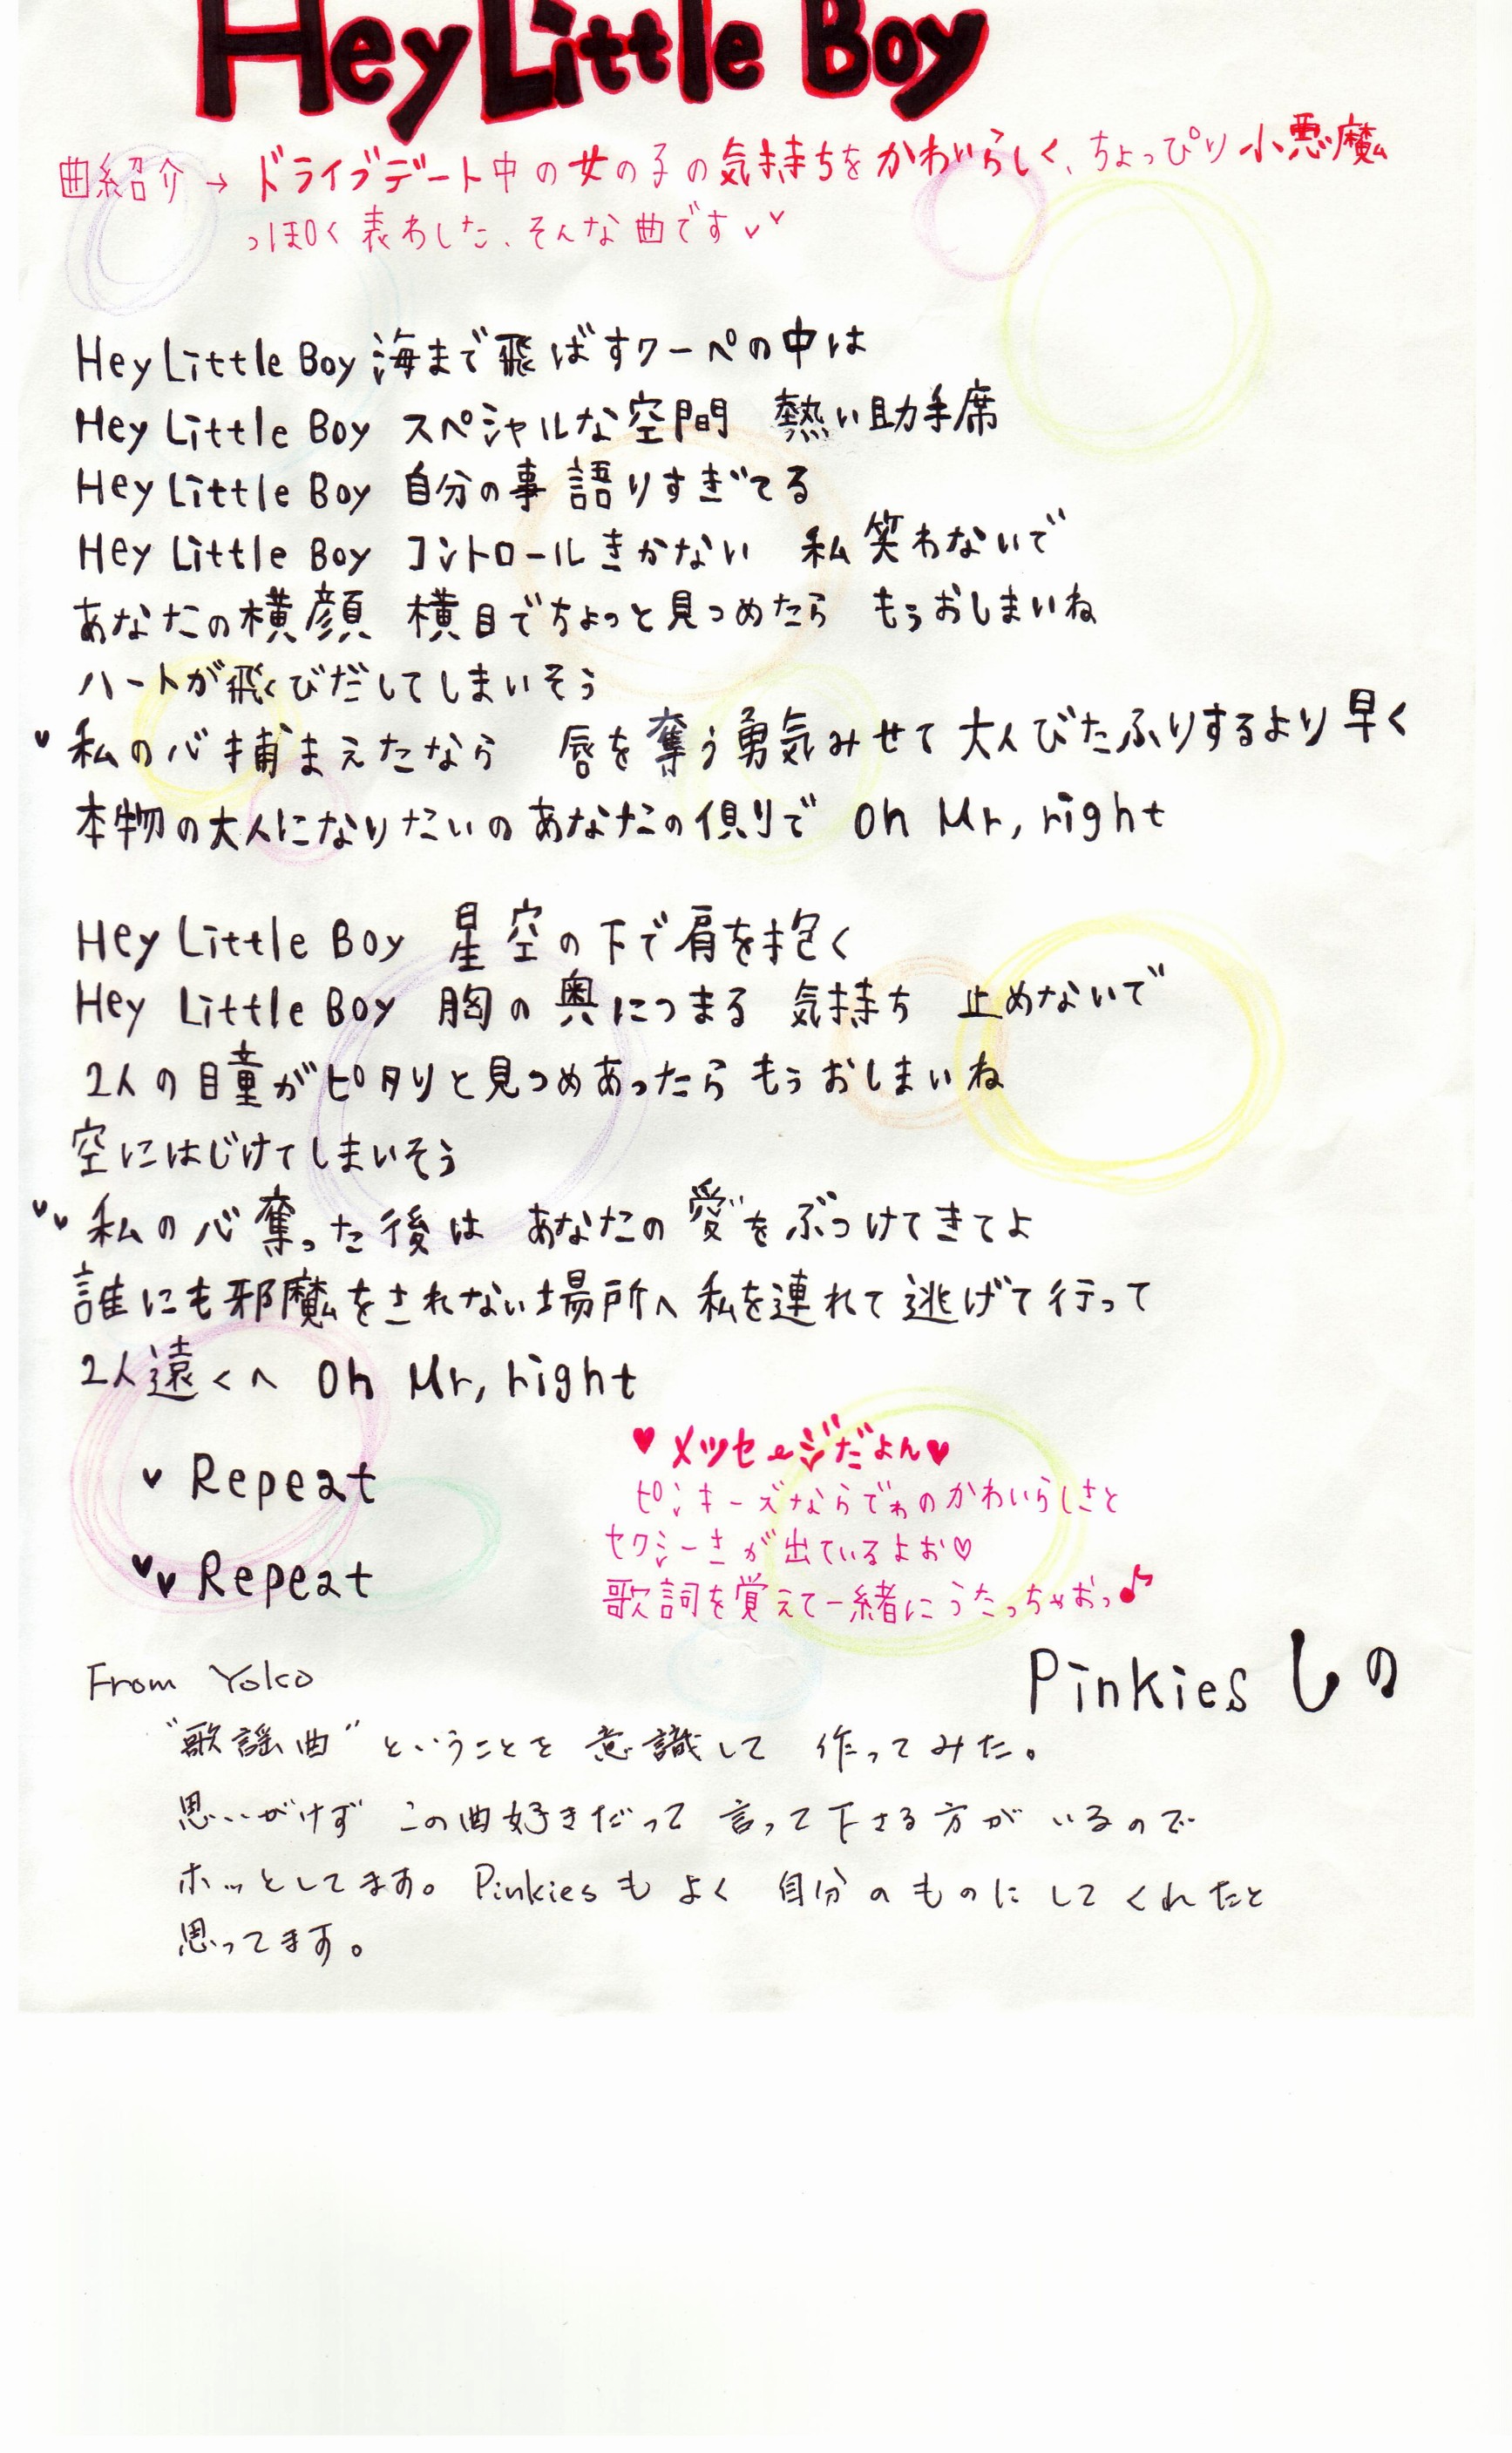 Hey Little Boy
曲紹介 → ドライブデート中の女の子の気持ちをかわいらしく、ちょっぴり小悪魔
っぽく表わした、そんな曲です♥♥
Hey Little Boy 海まで飛ばすクーペの中は
Hey Little Boy スペシャルな空間 熱い助手席
Hey Little Boy 自分の事語りすぎてる
Hey Little Boy コントロールきかない 私笑わないで
あなたの横顔 横目でちょっと見つめたら もうおしまいね
ハートが飛びだしてしまいそう
♥ 私の心捕まえたなら 唇を奪う勇気みせて 大人びたふりするより早く
本物の大人になりたいの あなたの側りで Oh Mr, right
Hey Little Boy 星空の下で肩を抱く
Hey Little Boy 胸の奥につまる 気持ち 止めないで
2人の瞳がピタリと見つめあったら もうおしまいね
空にはじけてしまいそう
♥♥ 私の心奪った後は あなたの愛をぶつけてきてよ
誰にも邪魔をされない場所へ 私を連れて逃げて行って
2人遠くへ Oh Mr, right
♥ Repeat
♥♥ Repeat
♥メッセージだよん♥
ピンキーズならでわのかわいらしさと
セクシーさが出ているよお♡
歌詞を覚えて一緒にうたっちゃおっ♪
Pinkies しの
From Yoko
"歌謡曲"ということを意識して 作ってみた。
思いがけず この曲好きだって 言って下さる方が いるので
ホッとしてます。Pinkiesも よく 自分のものに してくれたと
思ってます。